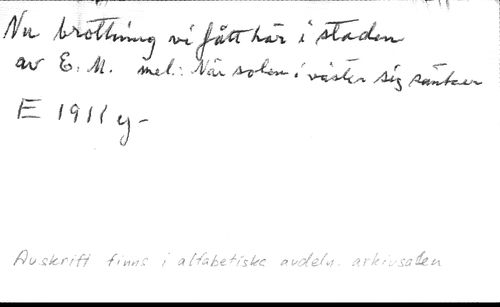 Nu brottning vi fått här i staden
av E. M. mel: När solen i väster sig sänker
E 1911 y-
Avskrift finns i alfabetiska avdeln. arkivsalen